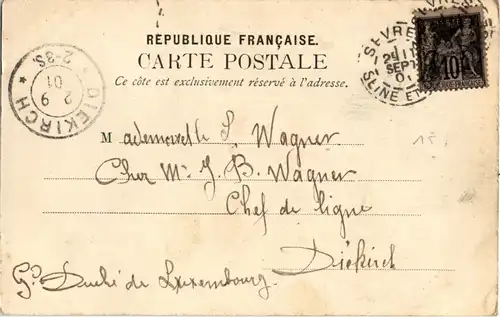 RÉPUBLIQUE FRANÇAISE.
CARTE POSTALE
Ce côté est exclusivement réservé à l'adresse.
SÈVRES
SEPT
SEINE ET
10
DIEKIRCH
2 9
01
2-3S.
15
Mademoiselle S. Wagner
Chez Mr J. B. Wagner
Chef de ligne
Diekirch
Gd Duché de Luxembourg